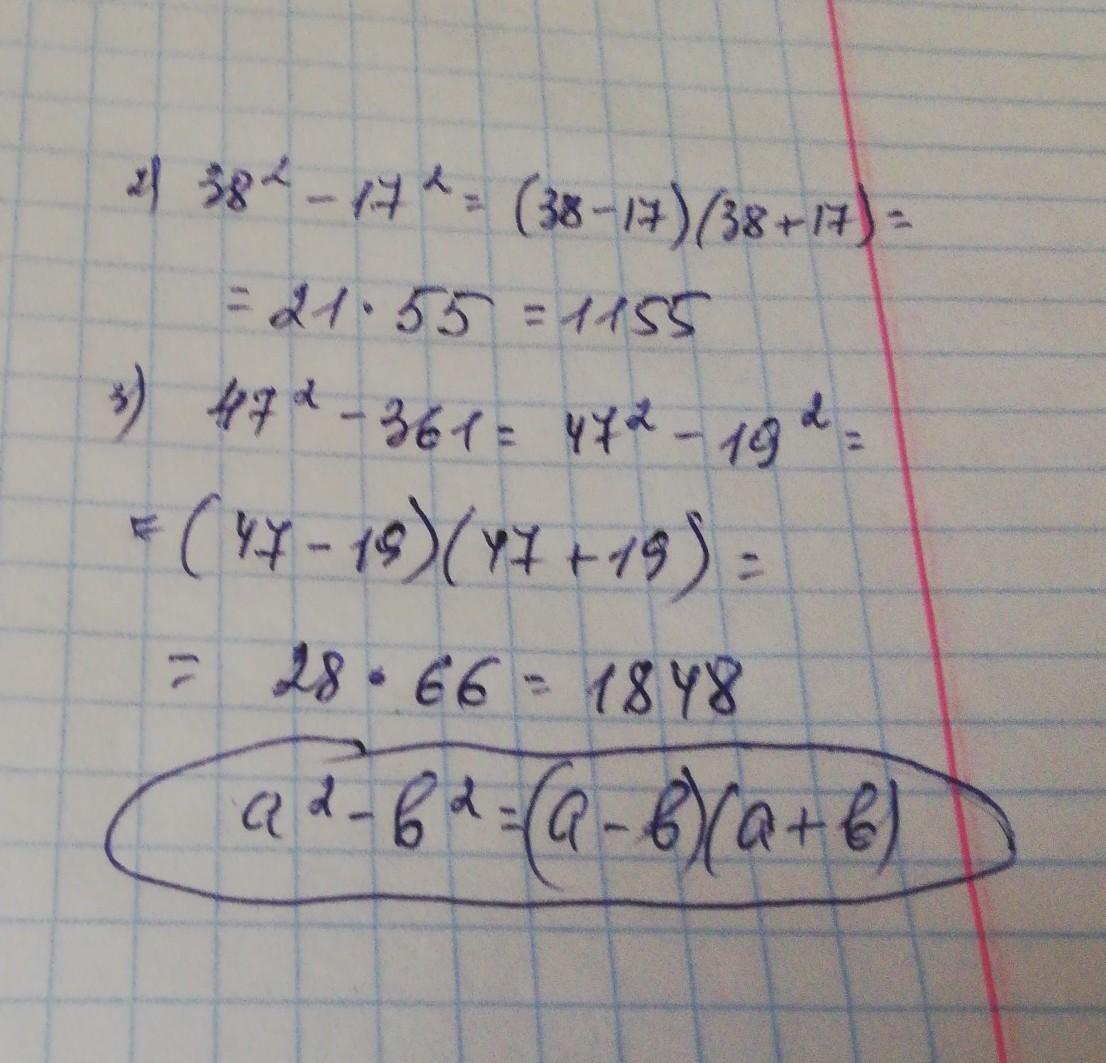 2) 38² - 17² = (38-17)(38+17) =
= 21 · 55 = 1155
3) 47² - 361 = 47² - 19² =
= (47 - 19)(47 + 19) =
= 28 · 66 = 1848
a² - b² = (a - b)(a + b)